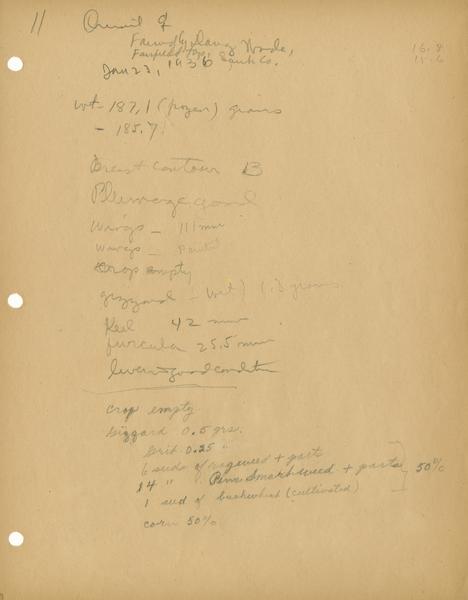 11
Found by Wade,
Fairfield Twp. Sauk Co.
Jan 23, 1936
16.8
wt - 187.1 (frozen) grams
- 185.7
Breast contour B
Plumage good
Wings - 111 mm
Wings -
Crop empty
gizzard - (wet) 1.3 grams
Keel 42 mm
furcula 25.5 mm
liver in good condition
crop empty
Gizzard 0.5 grs.
Grit 0.25 "
6 seeds of ragweed + part
14 " " Penn Smartweed + parts 50%
1 seed of buckwheat (cultivated)
corn 50%